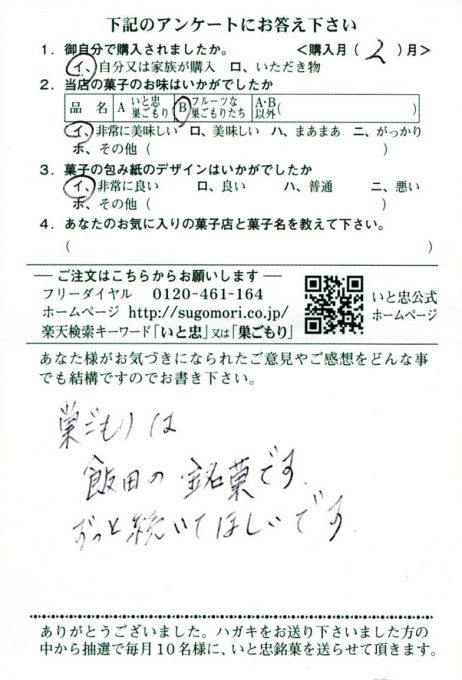 下記のアンケートにお答え下さい
1．御自分で購入されましたか。 ＜購入月（ 2 ）月＞
イ、自分又は家族が購入 ロ、いただき物
2．当店の菓子のお味はいかがでしたか
品 名 A いと忠巣ごもり B フルーツな巣ごもりたち A・B以外（ ）
イ、非常に美味しい ロ、美味しい ハ、まあまあ ニ、がっかり
ホ、その他（ ）
3．菓子の包み紙のデザインはいかがでしたか
イ、非常に良い ロ、良い ハ、普通 ニ、悪い
ホ、その他（ ）
4．あなたのお気に入りの菓子店と菓子名を教えて下さい。
（ ）
― ご注文はこちらからお願いします ―
フリーダイヤル 0120-461-164
ホームページ http://sugomori.co.jp/
楽天検索キーワード「いと忠」又は「巣ごもり」
いと忠公式
ホームページ
あなた様がお気づきになられたご意見やご感想をどんな事
でも結構ですのでお書き下さい。
巣ごもりは
飯田の銘菓です.
ずっと続いてほしいです.
ありがとうございました。ハガキをお送り下さいました方の
中から抽選で毎月10名様に、いと忠銘菓を送らせて頂きます。